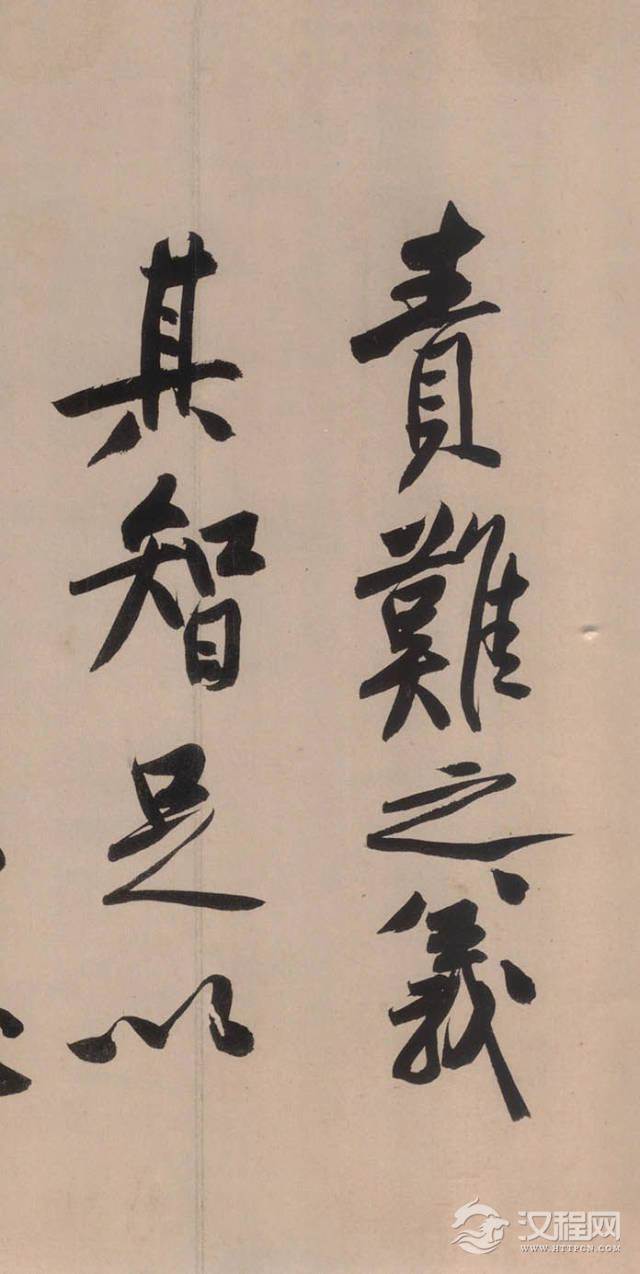 責難之義
其智足以
汉程网
WWW.HTTPCN.COM